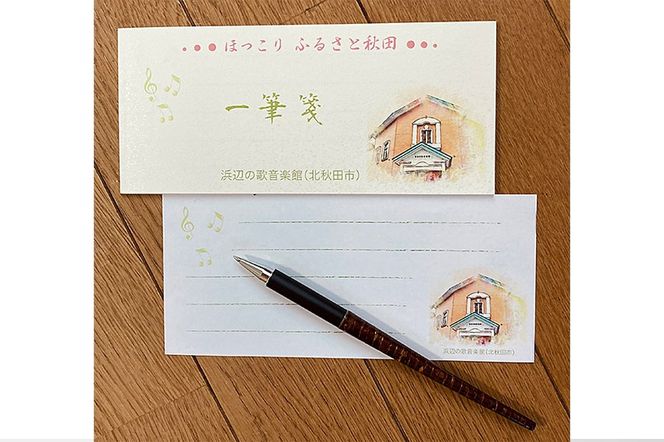 ほっこり ふるさと秋田
一筆箋
浜辺の歌音楽館(北秋田市)
浜辺の歌音楽館(北秋田市)